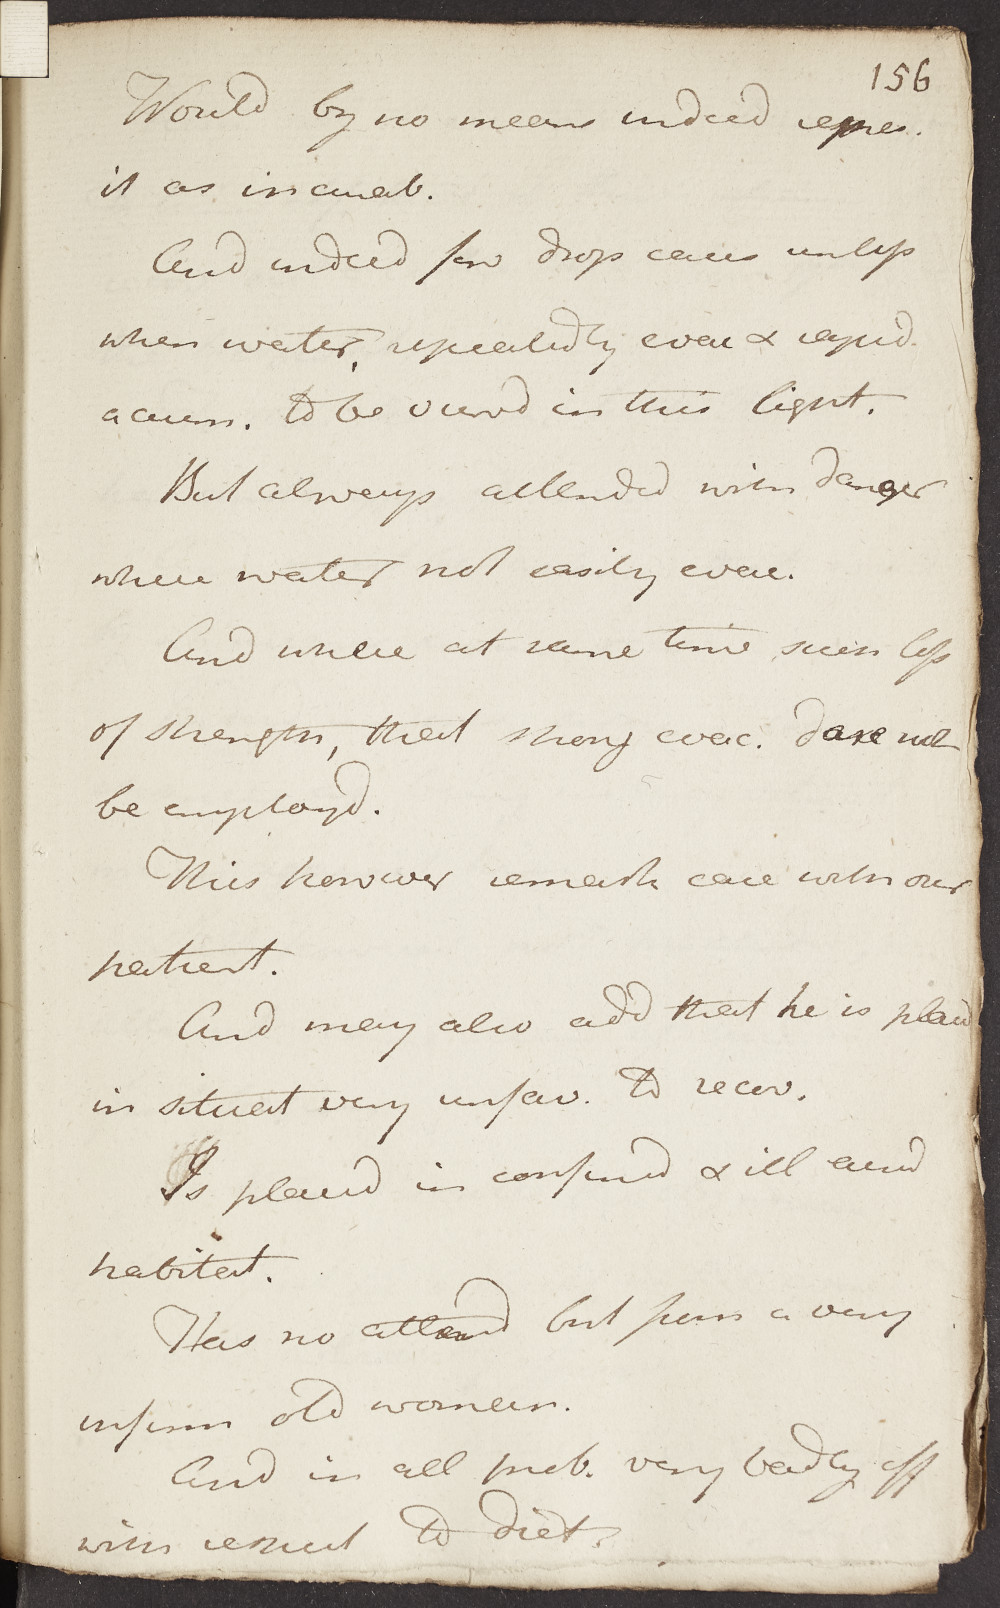 156
Would by no means indeed repres.
it as incurab.
And indeed few drops cases unless
when water, repeatedly evac & rapid
acum. to be viewd in this light.
But always attended with danger
where water not easily evac.
And where at same time such loss
of strength, that strong evac. dare not
be employd.
This however remark case with our
patient.
And may also add that he is placd
in situat very unfav. to recov.
Is placed in confind & ill aird
habitat.
Has no attend but from a very
infirm old woman.
And in all prob. very badly off
with respect to diet.